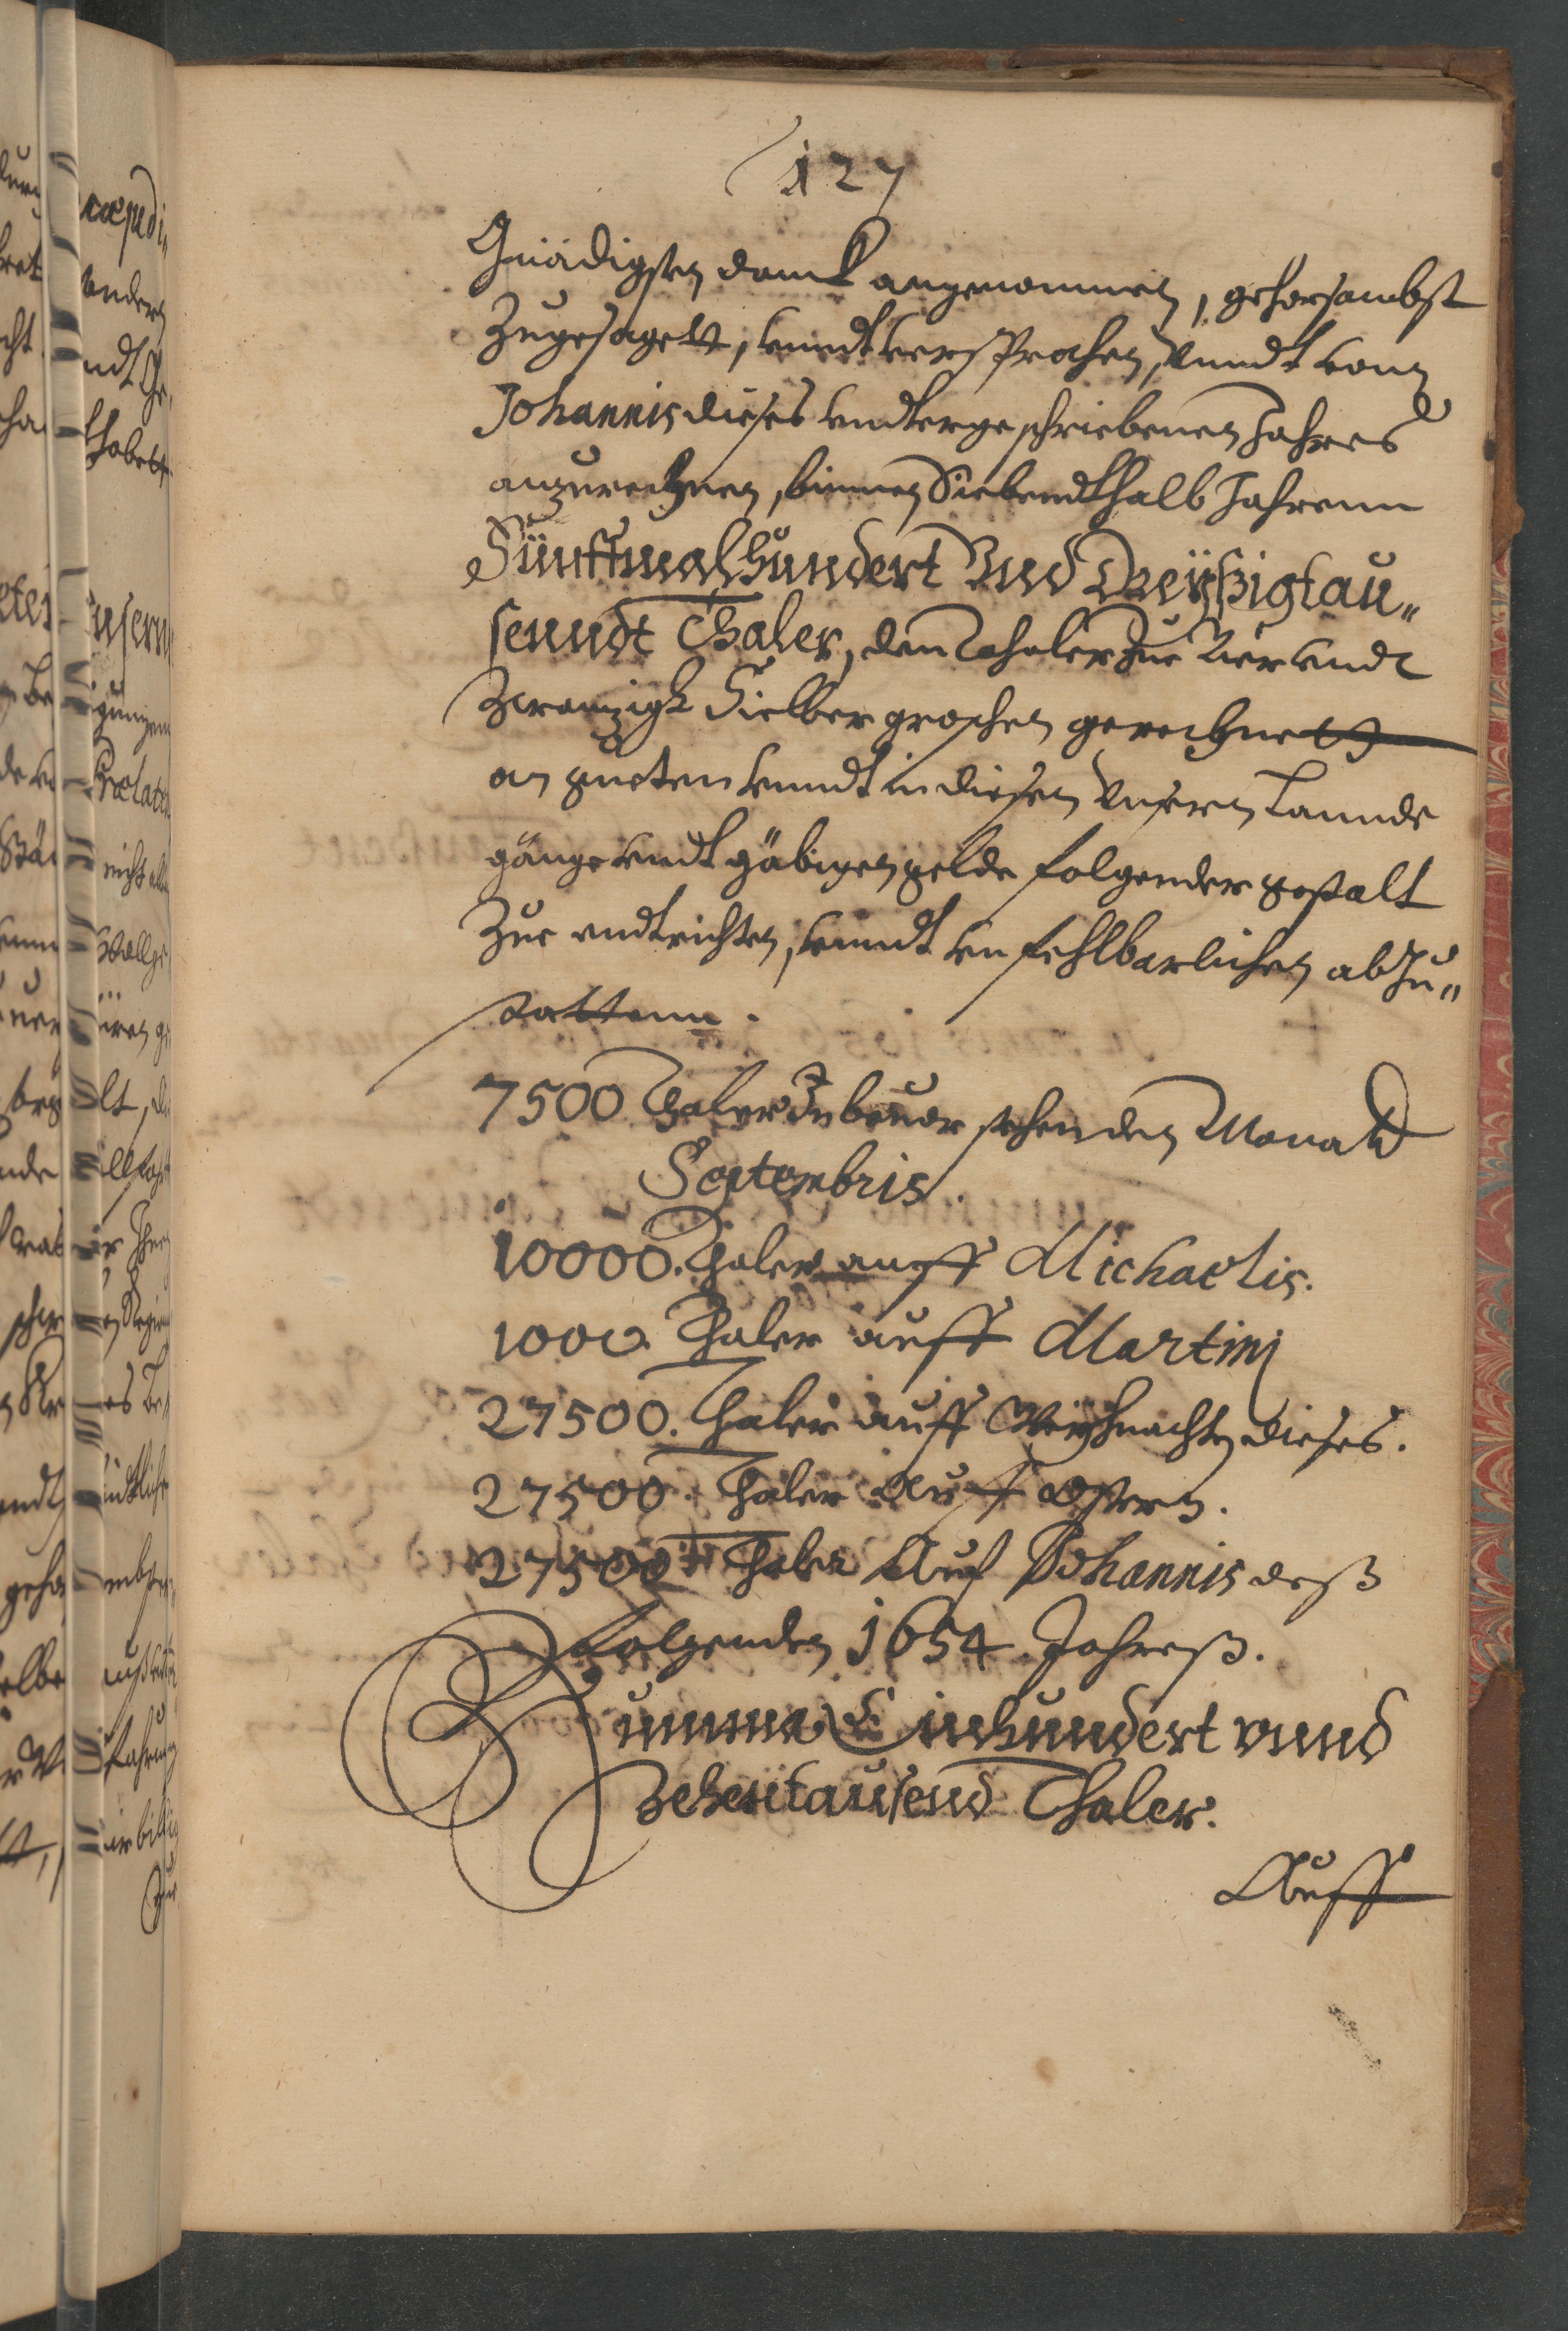 127
Gnädigsten danck angenommen, gehorsambst
Zugesagett, vnndt versprochen, vnndt vonn
Johannis dieses vndtergeschriebenen Jahres
anzurechnen, binnen Siebendthalb Jahrenn
Fünffmalhundert Vnd Dreÿßigtau„
senndt Thaler, den Thaler zue Vier vndt
Zwanzigk Sielber groschen gerechnett
an gueten vnndt in diesen Vnsern Lannde
gänge vndt gäbigen gelde folgender gestalt
Zue endtrichten, vnndt vnfehlbarlichen abzu„
stattenn.
7500 Thaler In bevor stehenden Monatt
Septembris.
10000. Thaler auff Michaelis.
1000. Thaler auff Martinj
27500. Thaler auff Weÿhnachten dieses.
27500. Thaler Auff Ostern.
27500 Thaler Auf Johannis deß
folgenden 1654. Jahreß.
Summa Einhundert vnnd
Zehentausend Thaler.
Auff